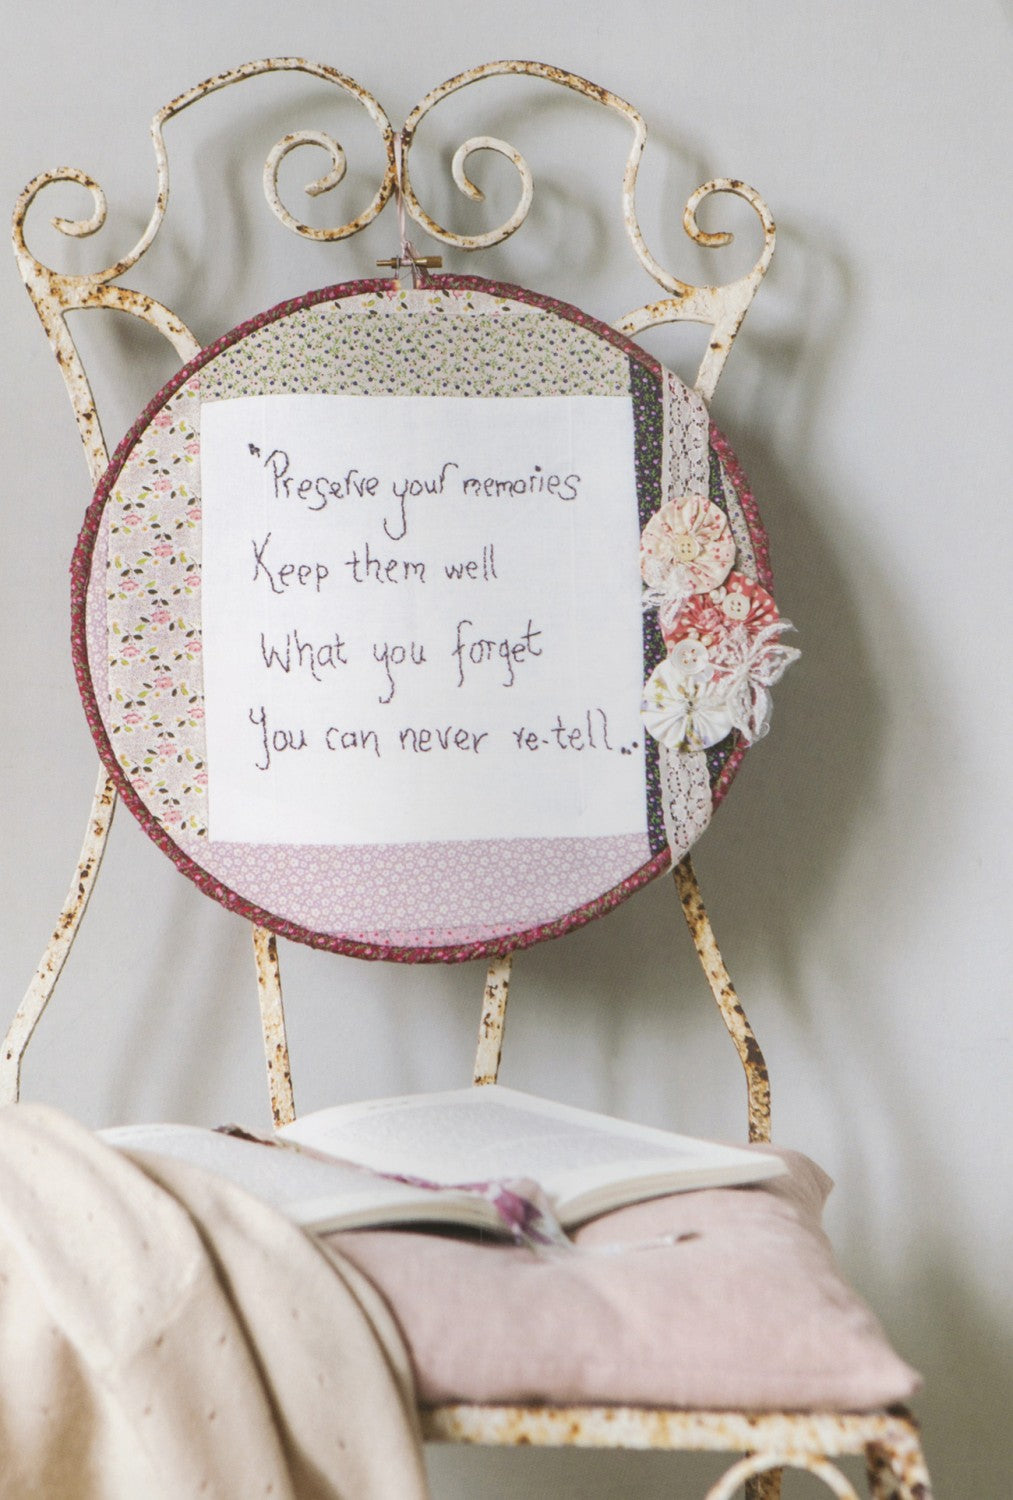 "Preserve your memories
Keep them well
What you forget
You can never re-tell...